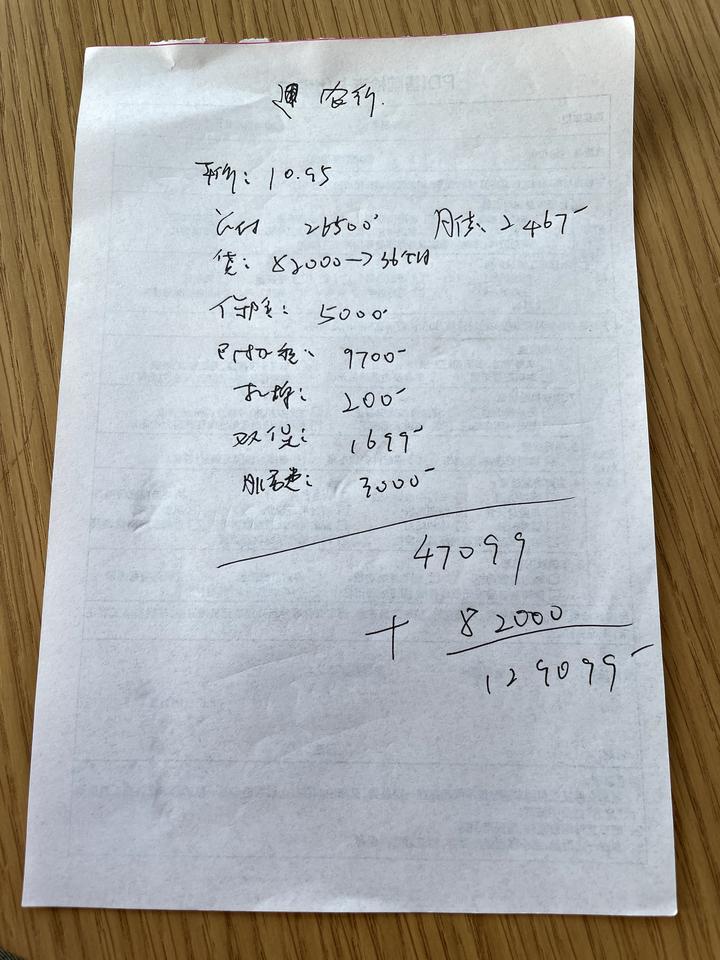 农行
车价: 10.95
首付 26500 月供: 2467
贷: 82000→36个月
保险: 5000
购置税: 9700
上牌: 200
双保: 1699
服务费: 3000
47099
+ 82000
129099